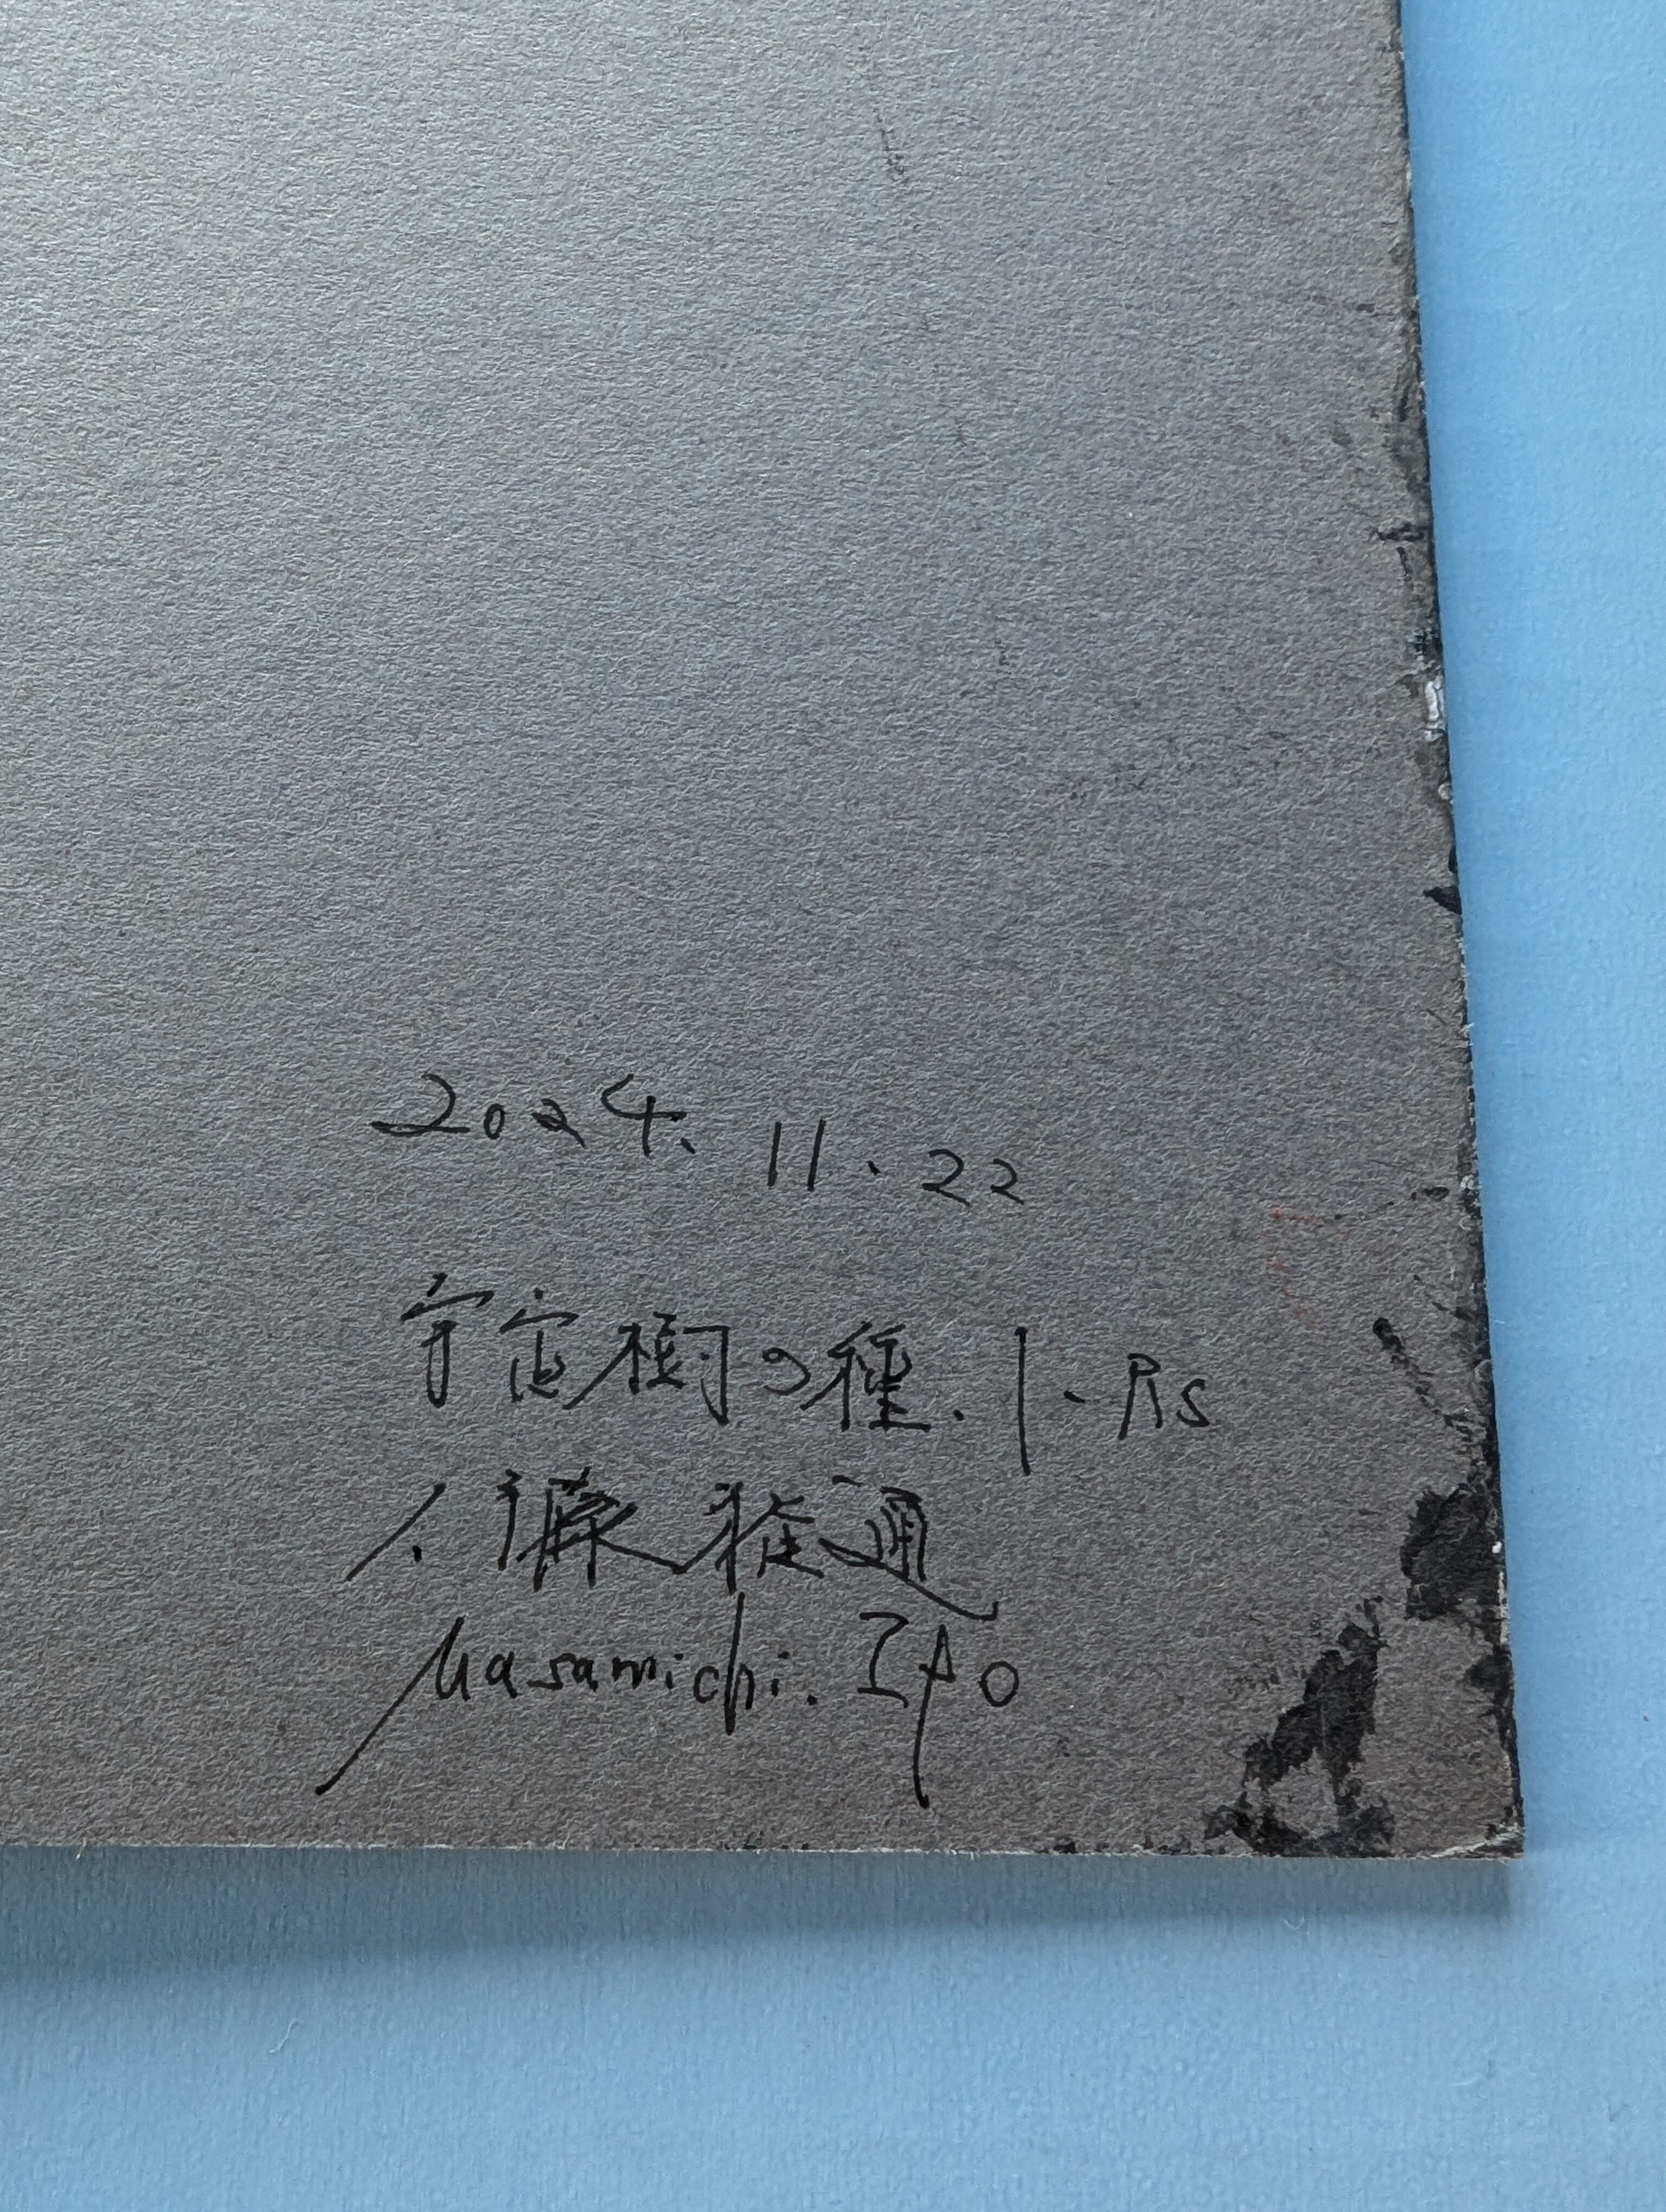 2024. 11. 22
宇宙樹の種. 1. Rs
伊藤雅通
Masamichi. Ito